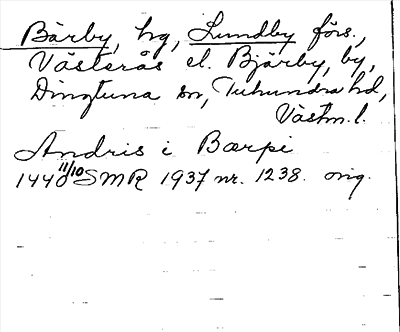 Bärby, hg, Lundby förs.,
Västerås el. Bjärby, by,
Dingtuna sn, Tuhundra hd,
Västm. l.
Andris i Bærpi
1440 11/10 SMR 1937 nr. 1238. orig.